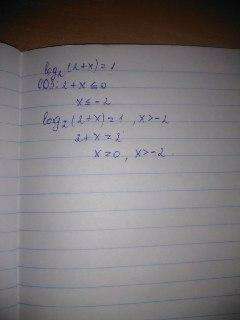 log₂(2+x)=1
ОДЗ: 2+x≤0
x≤-2
log₂(2+x)=1, x>-2
2+x=2
x=0, x>-2